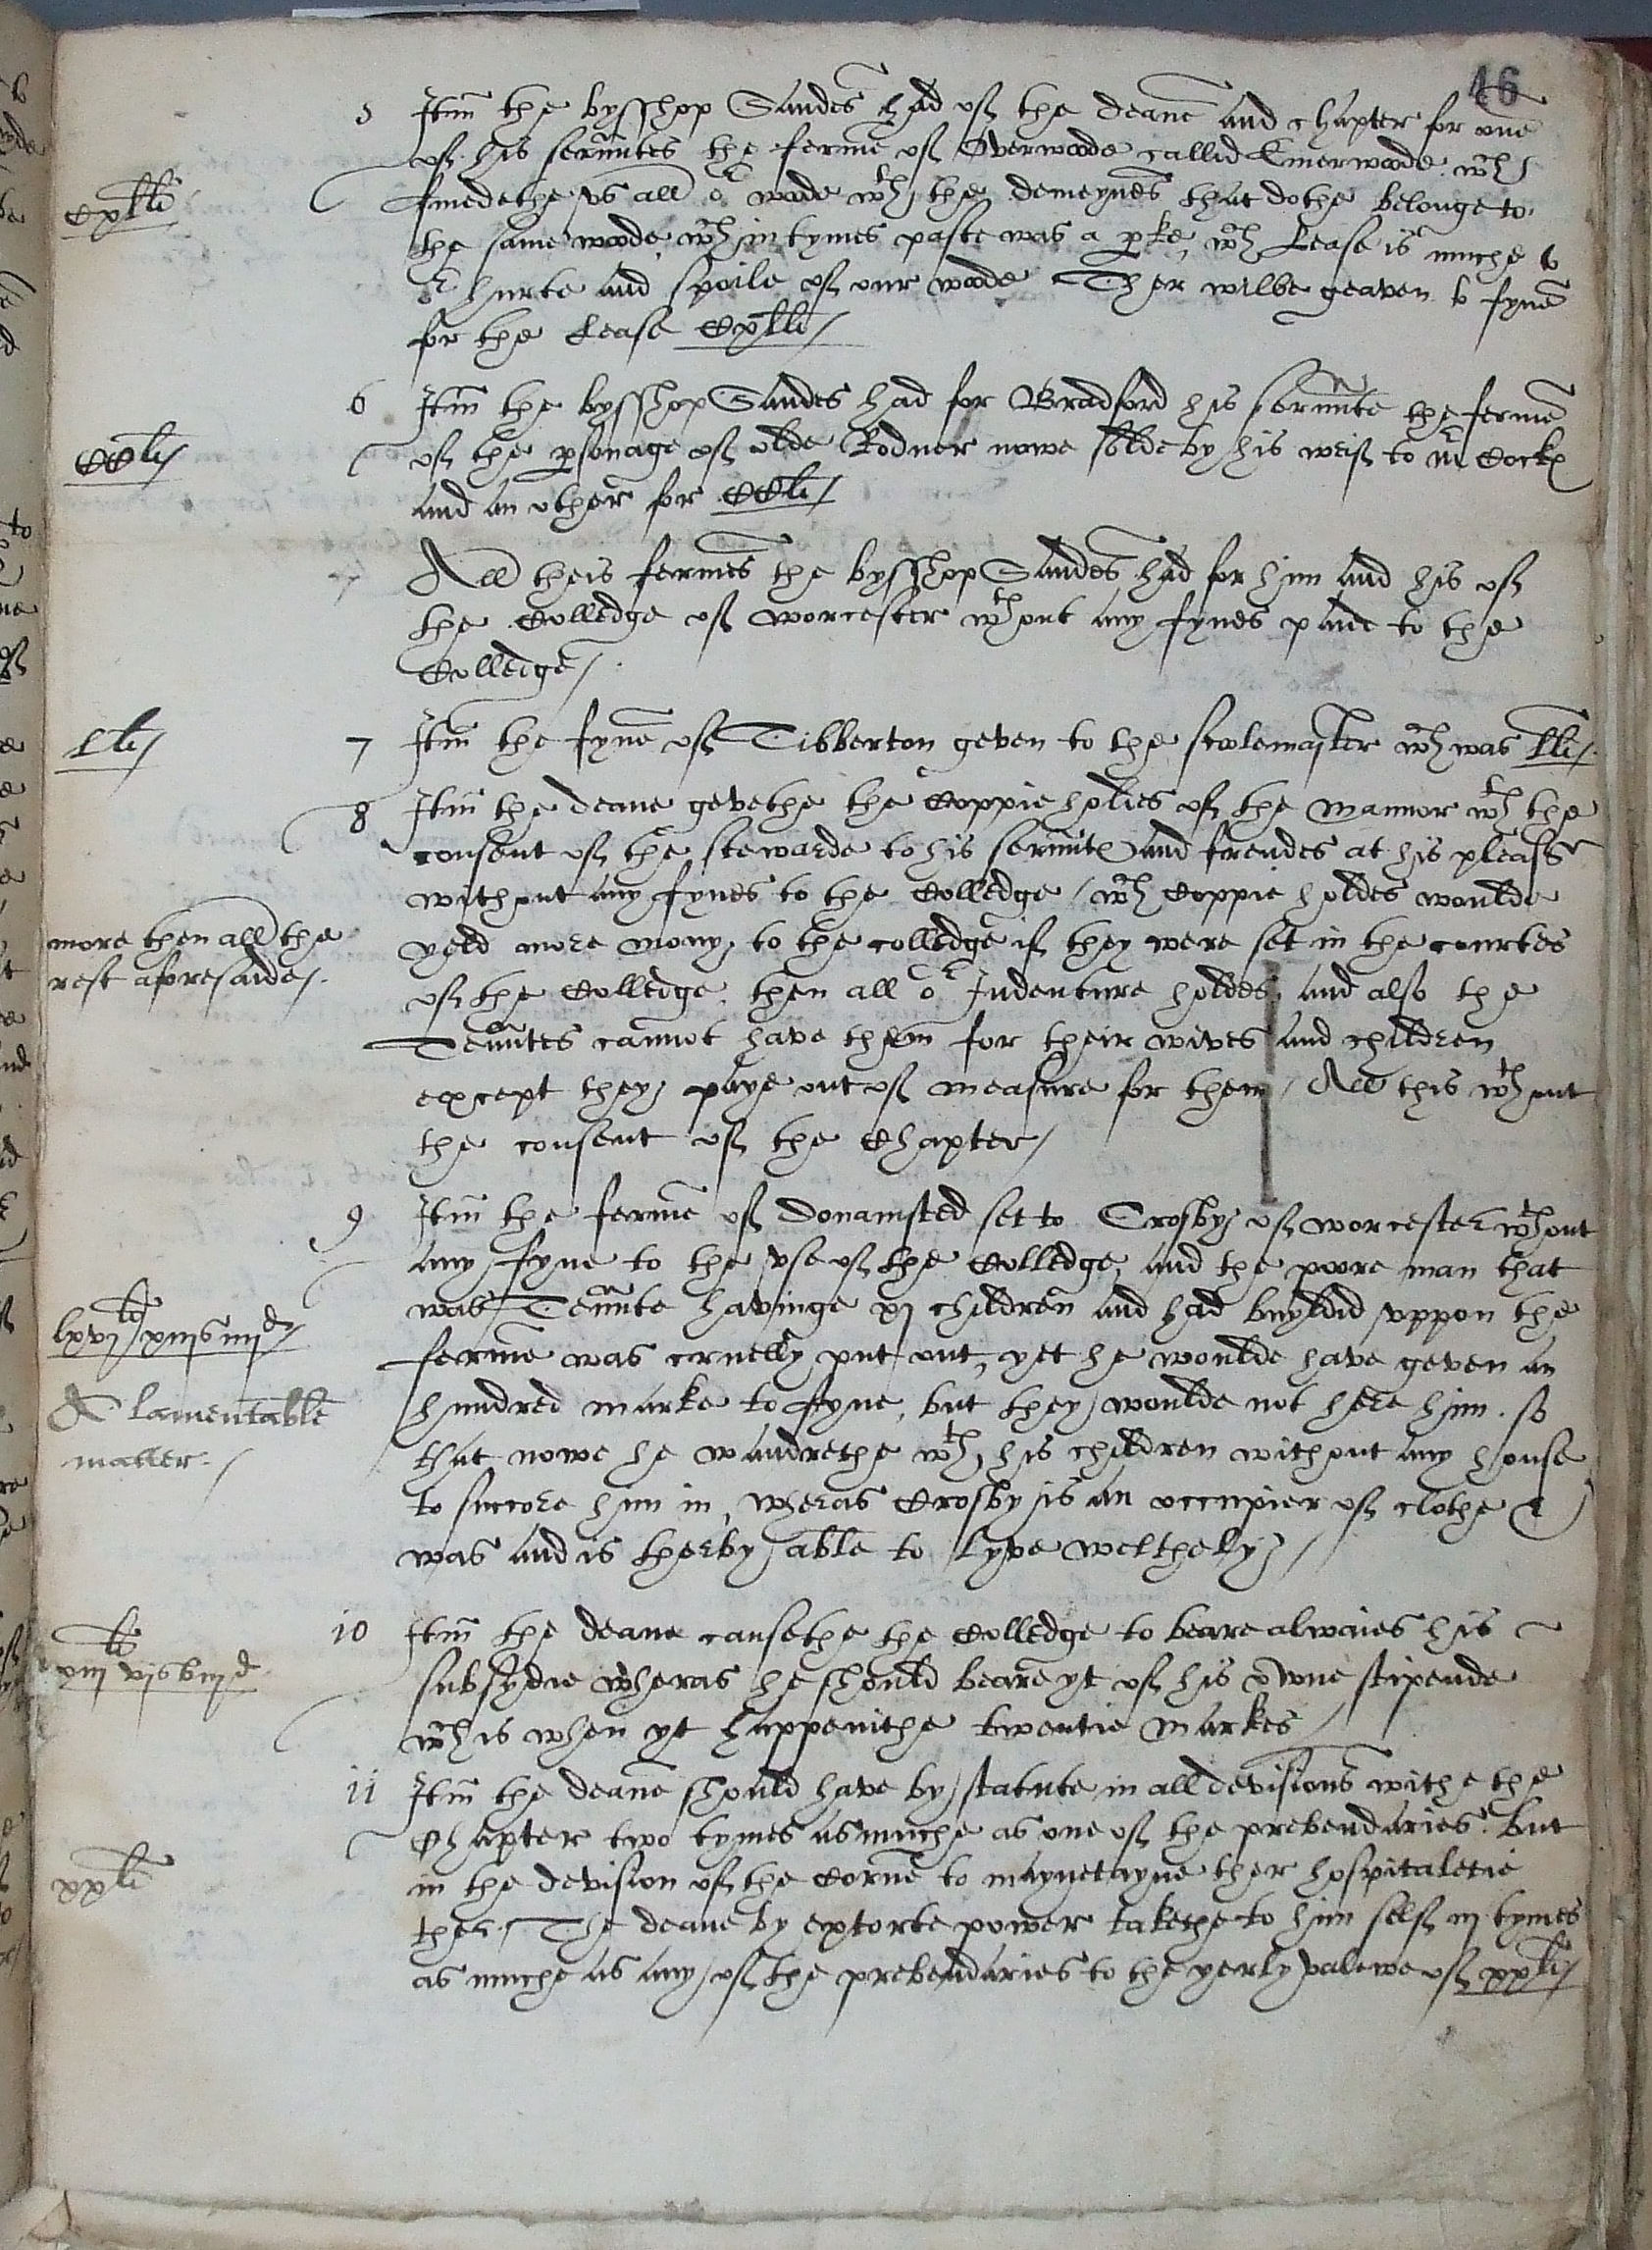 46
5 Itm the bysshop Sandes had of the deane and chapter for one
of his servntes the ferme of Overwoode callid Emerwoode wch
Cxlli
findethe us all or wode wth the demeynes that dothe belonge to
the same woode, wch in tymes paste was a parke, wch Lease is muche to
or hurte and spoile of our wode Ther wilbe geaven to fyne
for the Lease Cxlli/
6 Itm the bysshop Sandes had for Bradford his servnte the ferme
CCli/
of the psonage of olde Rodner nowe solde by his weif to Mr Cockes
and an other for CCli/
All theis fermes the bysshop Sandes had for him and his of
the Colledge of worcester wthout any fynes paide to the
Colledge/.
Lli/
7 Itm the fyne of Tibberton geven to the scolemaster wch was Lli/.
8 Itm the deane gevethe the Coppie holdes of the mannor wth the
consent of the stewarde to his servntes and frendes at his pleasr
without any fynes to the Colledge / wch Coppie holdes woulde
more then all the
rest aforesaide/.
yeld more mony to the colledge if they were set in the courtes
of the Colledge then all or Indenture holdes, and also the
Tenntes cannot have them for their wives and children
except they paye out of measure for them / All this wthout
the consent of the Chapter/
9 Itm the ferme of Donamsted set to Crosby of worcester wthout
any fyne to the use of the Colledge, and the poore man that
was Tennte havinge xj children and had buyldid uppon the
lxvjli xiijs iiijd/
ferme was cruelly put out, yet he woulde have geven an
A lamentable
matter./
hundred marke to fyne, but they woulde not here him. so
that nowe he wandrethe wth his children without any house
to succore him in, wheras Crosby is an occupier of clothe &
was and is therby able to lyve welthely /
10 Itm the deane causethe the Colledge to beare alwaies his
xiijli vjs viijd
subsydie wheras he should beare yt of his owne stipende
wch is when yt happenithe twentie markes /
11 Itm the deane should have by statute in all devisions withe the
Chapter two tymes as muche as one of the prebendaries. But
xxli
in the devision of the Corne to maynetayne ther hospitaletie
ther. The deane by extorte power takethe to him self iij tymes
as muche as any of the prebendaries to the yerly valewe of xxli/